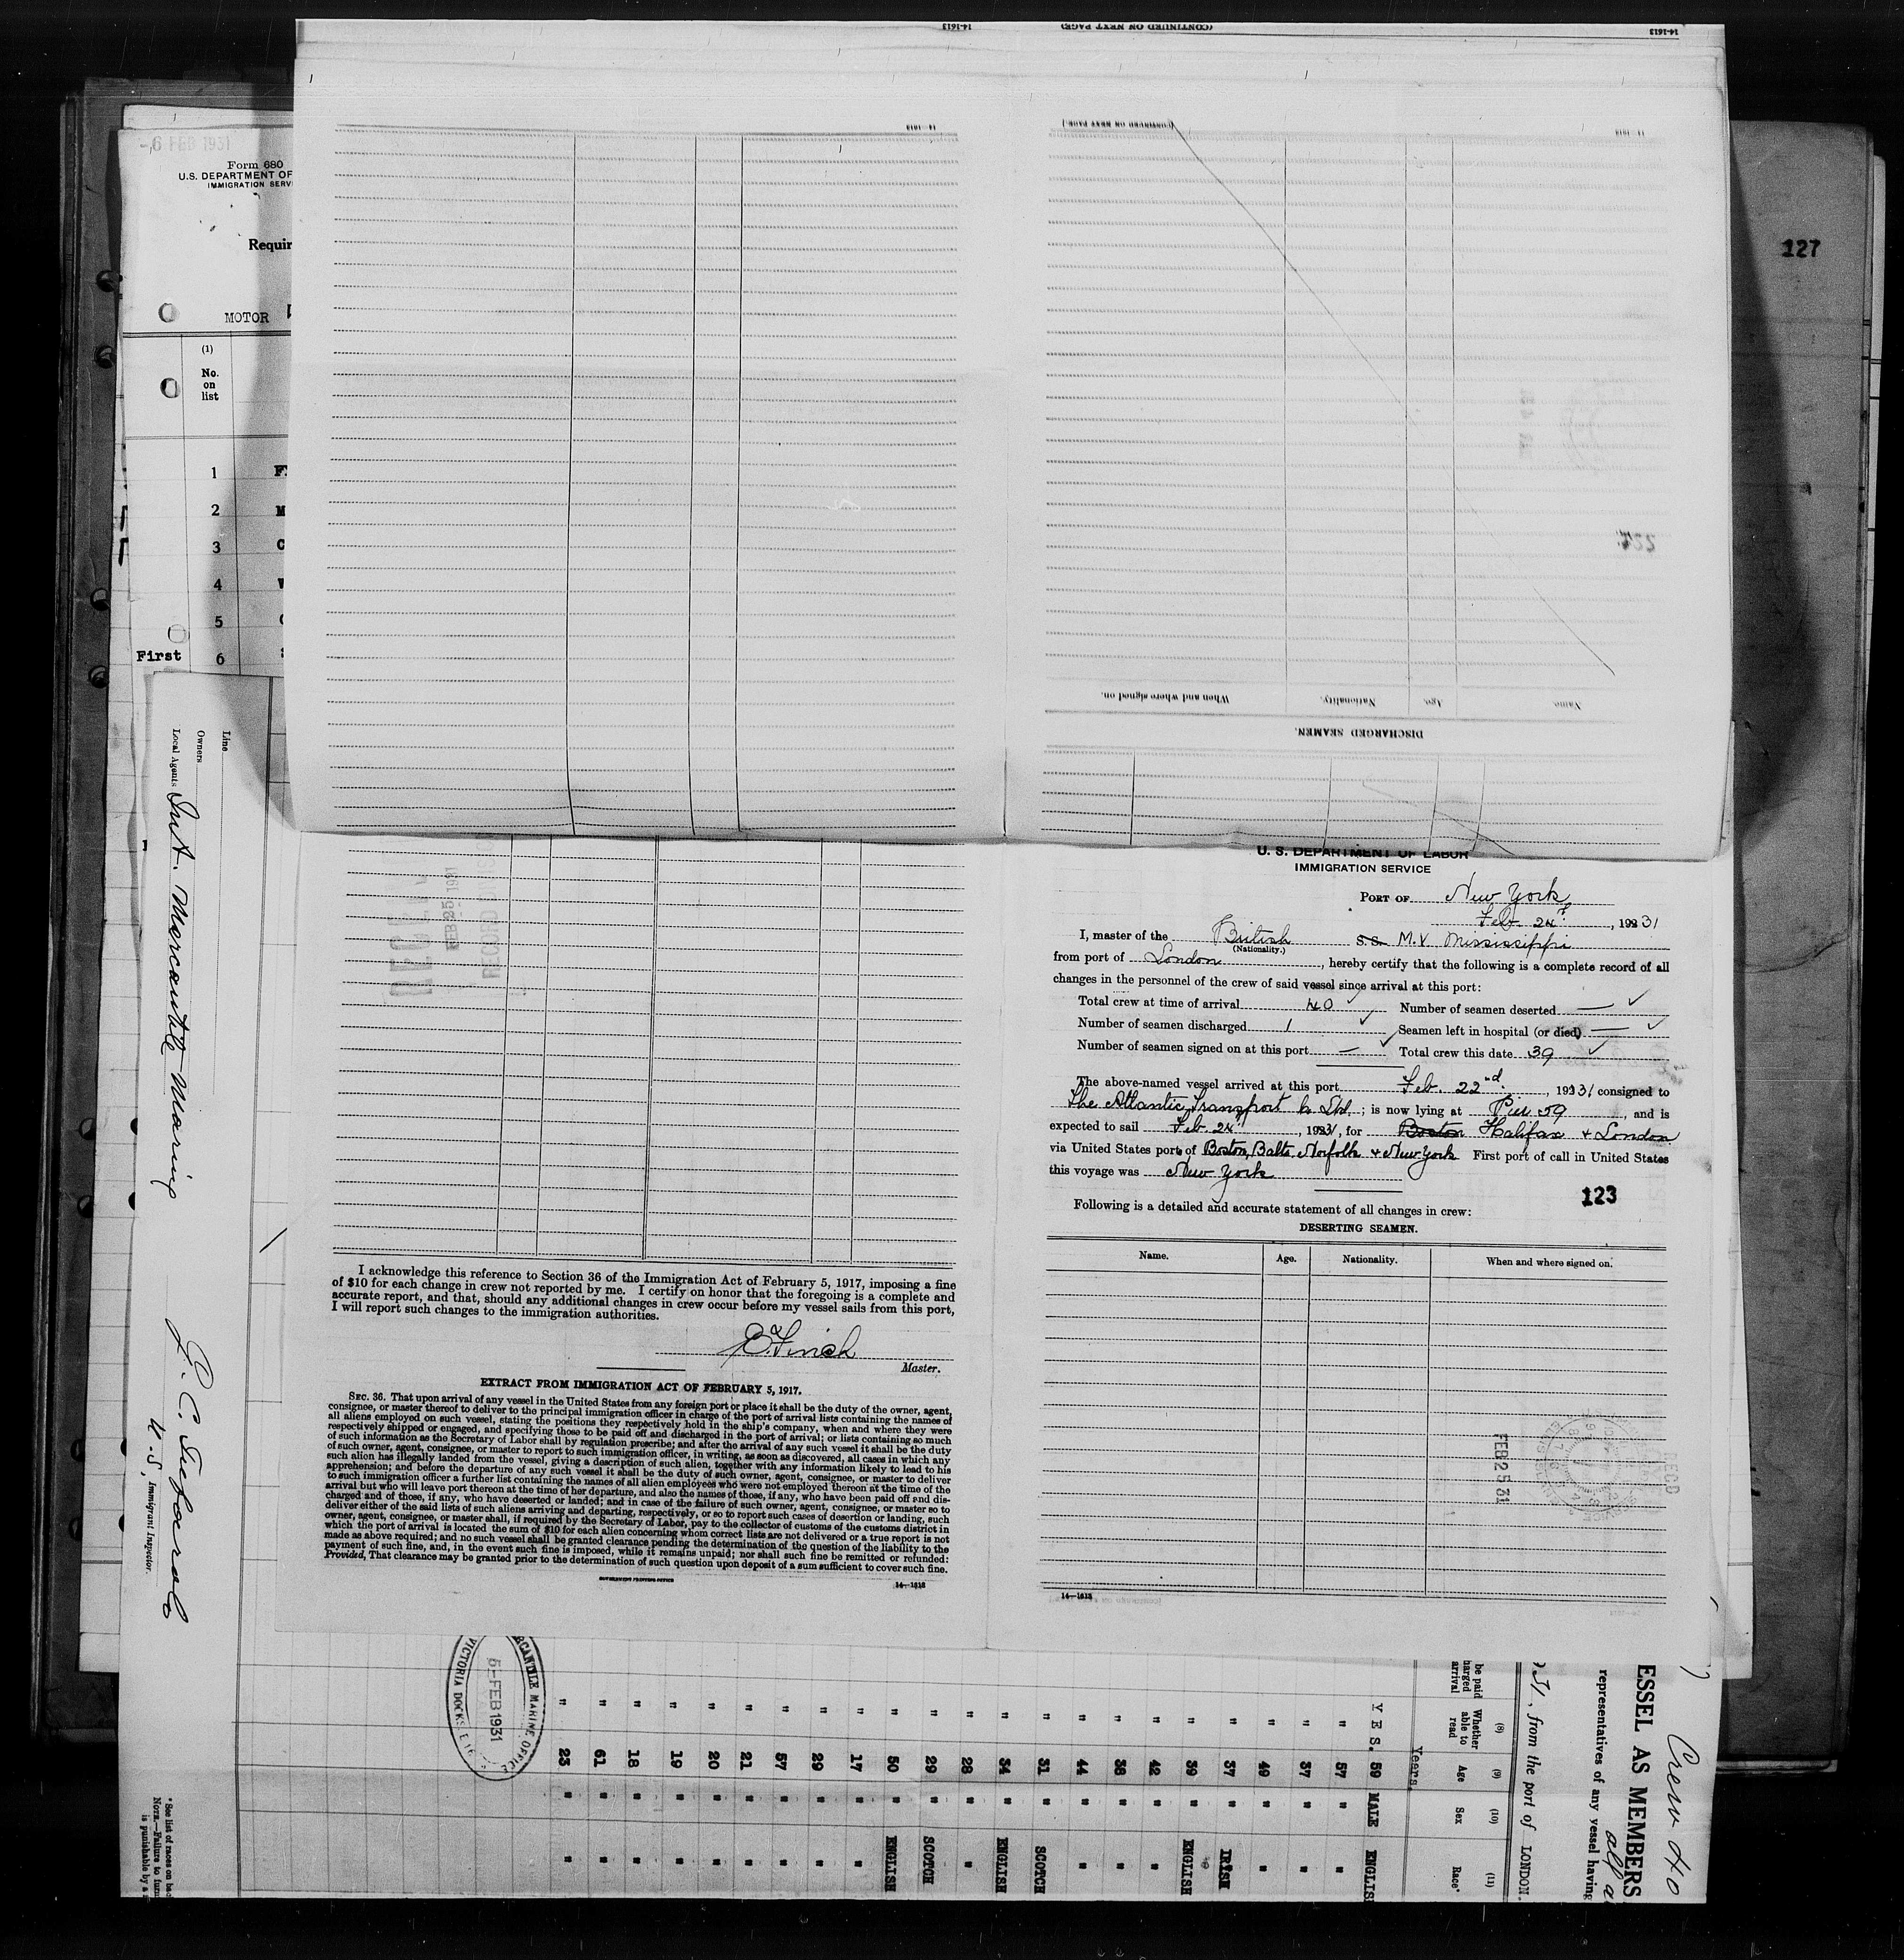 14-1613
(CONTINUED ON NEXT PAGE)
14-1613
14-1613
(CONTINUED ON NEXT PAGE.)
-6 FEB 1931
Form 680
U.S. DEPARTMENT OF
IMMIGRATION SERV
Requir
MOTOR
(1)
No.
on
list
1
2
3
4
5
First 6
127
When and where signed on.
Nationality.
Age.
Name.
DISCHARGED SEAMEN.
Line
Owners
Local Agents Int. Mercantile Marine
U.S. Immigrant Inspector.
FEB 25 1931
U. S. DEPARTMENT OF LABOR
IMMIGRATION SERVICE
PORT OF New York
Feb 24th, 19231
I, master of the British S.S. M.V Mississippi
(Nationality.)
from port of London, hereby certify that the following is a complete record of all
changes in the personnel of the crew of said vessel since arrival at this port:
Total crew at time of arrival 40 ✓ Number of seamen deserted — ✓
Number of seamen discharged 1 ✓ Seamen left in hospital (or died) — ✓
Number of seamen signed on at this port — ✓ Total crew this date 39 ✓
The above-named vessel arrived at this port Feb. 22nd, 19231 consigned to
The Atlantic Transport Co Ltd; is now lying at Pier 59, and is
expected to sail Feb. 24, 19231, for Boston Halifax + London
via United States ports of Boston, Balto, Norfolk + New York First port of call in United States
this voyage was New York
123
Following is a detailed and accurate statement of all changes in crew:
DESERTING SEAMEN.
Name. Age. Nationality. When and where signed on.
FEB 25 31
REC'D
14-1613
I acknowledge this reference to Section 36 of the Immigration Act of February 5, 1917, imposing a fine
of $10 for each change in crew not reported by me. I certify on honor that the foregoing is a complete and
accurate report, and that, should any additional changes in crew occur before my vessel sails from this port,
I will report such changes to the immigration authorities.
E. Finch
Master.
EXTRACT FROM IMMIGRATION ACT OF FEBRUARY 5, 1917.
SEC. 36. That upon arrival of any vessel in the United States from any foreign port or place it shall be the duty of the owner, agent,
consignee, or master thereof to deliver to the principal immigration officer in charge of the port of arrival lists containing the names of
all aliens employed on such vessel, stating the positions they respectively hold in the ship's company, when and where they were
respectively shipped or engaged, and specifying those to be paid off and discharged in the port of arrival; or lists containing so much
of such information as the Secretary of Labor shall by regulation prescribe; and after the arrival of any such vessel it shall be the duty
of such owner, agent, consignee, or master to report to such immigration officer, in writing, as soon as discovered, all cases in which any
such alien has illegally landed from the vessel, giving a description of such alien, together with any information likely to lead to his
apprehension; and before the departure of any such vessel it shall be the duty of such owner, agent, consignee, or master to deliver
to such immigration officer a further list containing the names of all alien employees who were not employed thereon at the time of the
arrival but who will leave port thereon at the time of her departure, and also the names of those, if any, who have been paid off and dis-
charged and of those, if any, who have deserted or landed; and in case of the failure of such owner, agent, consignee, or master so to
deliver either of the said lists of such aliens arriving and departing, respectively, or so to report such cases of desertion or landing, such
owner, agent, consignee, or master shall, if required by the Secretary of Labor, pay to the collector of customs of the customs district in
which the port of arrival is located the sum of $10 for each alien concerning whom correct lists are not delivered or a true report is not
made as above required; and no such vessel shall be granted clearance pending the determination of the question of the liability to the
payment of such fine, and, in the event such fine is imposed, while it remains unpaid; nor shall such fine be remitted or refunded:
Provided, That clearance may be granted prior to the determination of such question upon deposit of a sum sufficient to cover such fine.
GOVERNMENT PRINTING OFFICE
14-1613
Crew 40
ESSEL AS MEMBERS
representatives of any vessel having
31, from the port of LONDON.
be paid
harged
arrival
(8)
Whether
able to
read
(9)
Age
(10)
Sex
(11)
Race*
Years.
YES. 59 MALE ENGLIS
" 57 " "
" 37 " "
" 49 " "
" 37 " IRISH
" 39 " ENGLISH
" 42 " "
" 38 " "
" 44 " "
" 31 " SCOTCH
" 34 " ENGLISH
" 28 " "
" 29 " SCOTCH
" 50 " ENGLISH
" 17 " "
" 29 " "
" 57 " "
" 21 " "
" 20 " "
" 19 " "
" 18 " "
" 61 " "
" 23 " "
RCANTILE MARINE OFFICE
5-FEB 1931
VICTORIA DOCKS. E.16
* See list of races on bac
NOTE.—Failure to furn
is punishable by a